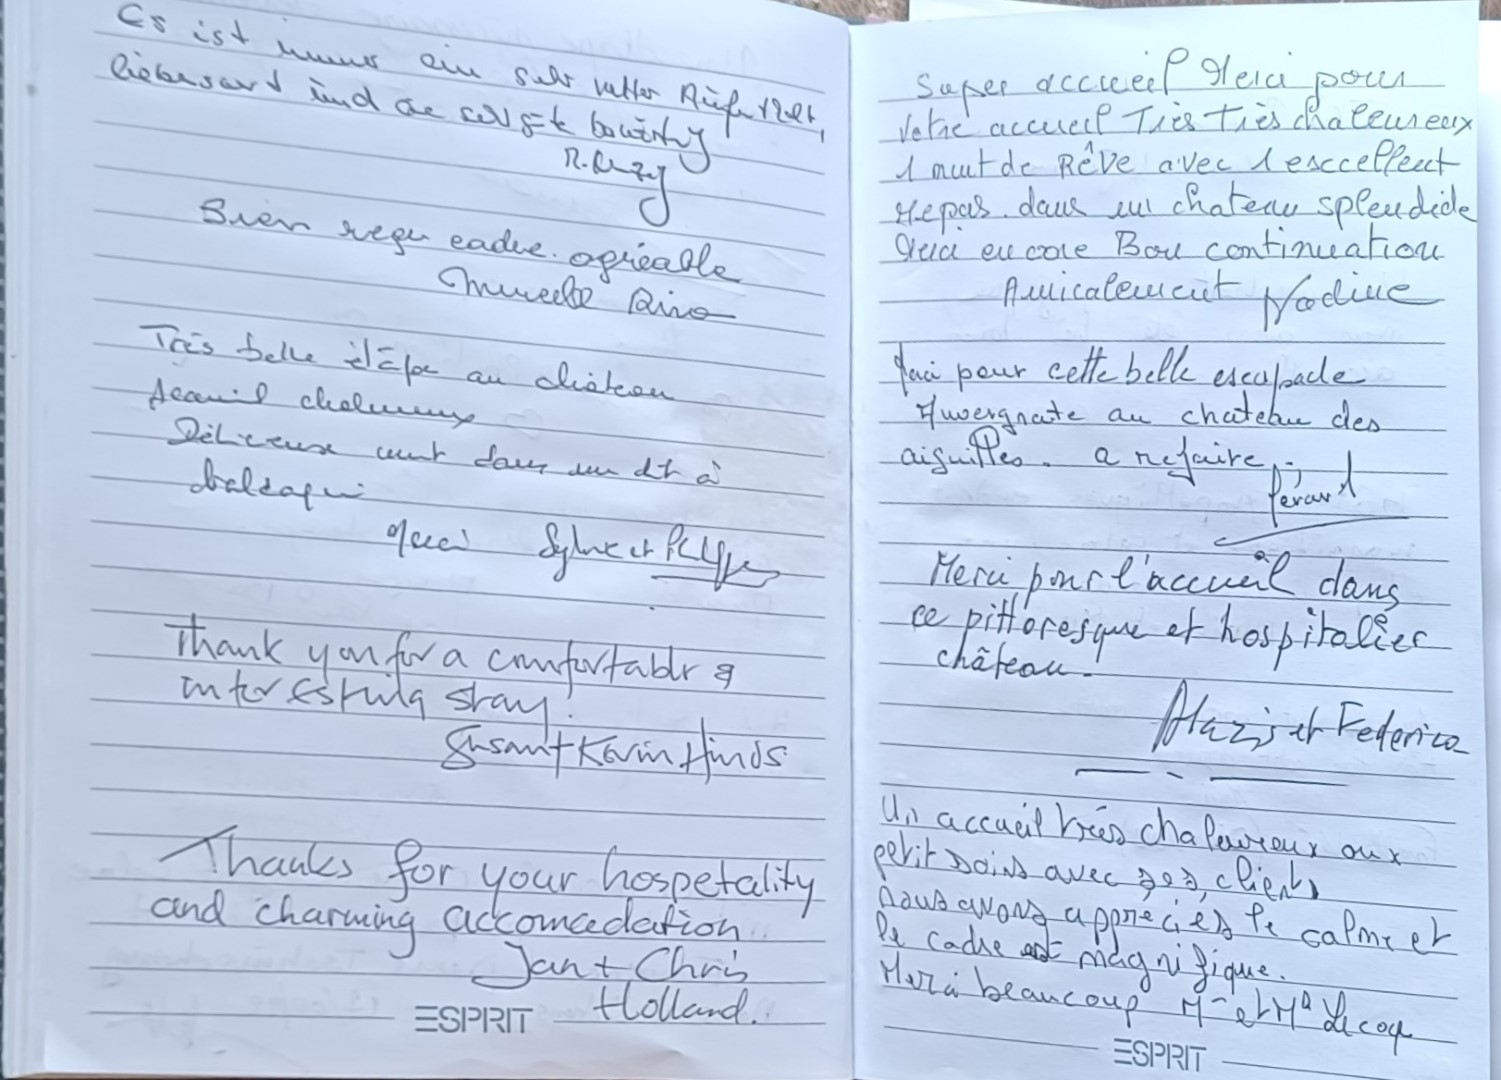 Es ist immer ein sehr netter
und
Bien reçu cadre agréable
Très belle étape au château
Accueil chaleureux
Délicieuse nuit dans un lit à
baldaqui
Merci Sylvie et
Thank you for a comfortable &
interesting stay.
Susan + Karin Hinds
Thanks for your hospetality
and charming accomedation
Jan + Chris
Holland.
ESPRIT
Super accueil Merci pour
votre accueil Très Très chaleureux
1 nuit de Rêve avec 1 esccellent
Repas dans un chateau splendide
Merci encore Bon continuation
Amicalement Nadine
Merci pour cette belle escapade
Auvergnate au chateau des
aiguilles. a refaire
Merci pour l'accueil dans
ce pittoresque et hospitalier
château.
et Federico
Un accueil très chaleureux aux
petit soins avec ses clients
nous avons appreciés le calme et
le cadre est magnifique.
Merci beaucoup Mr et Me Lecoq
ESPRIT